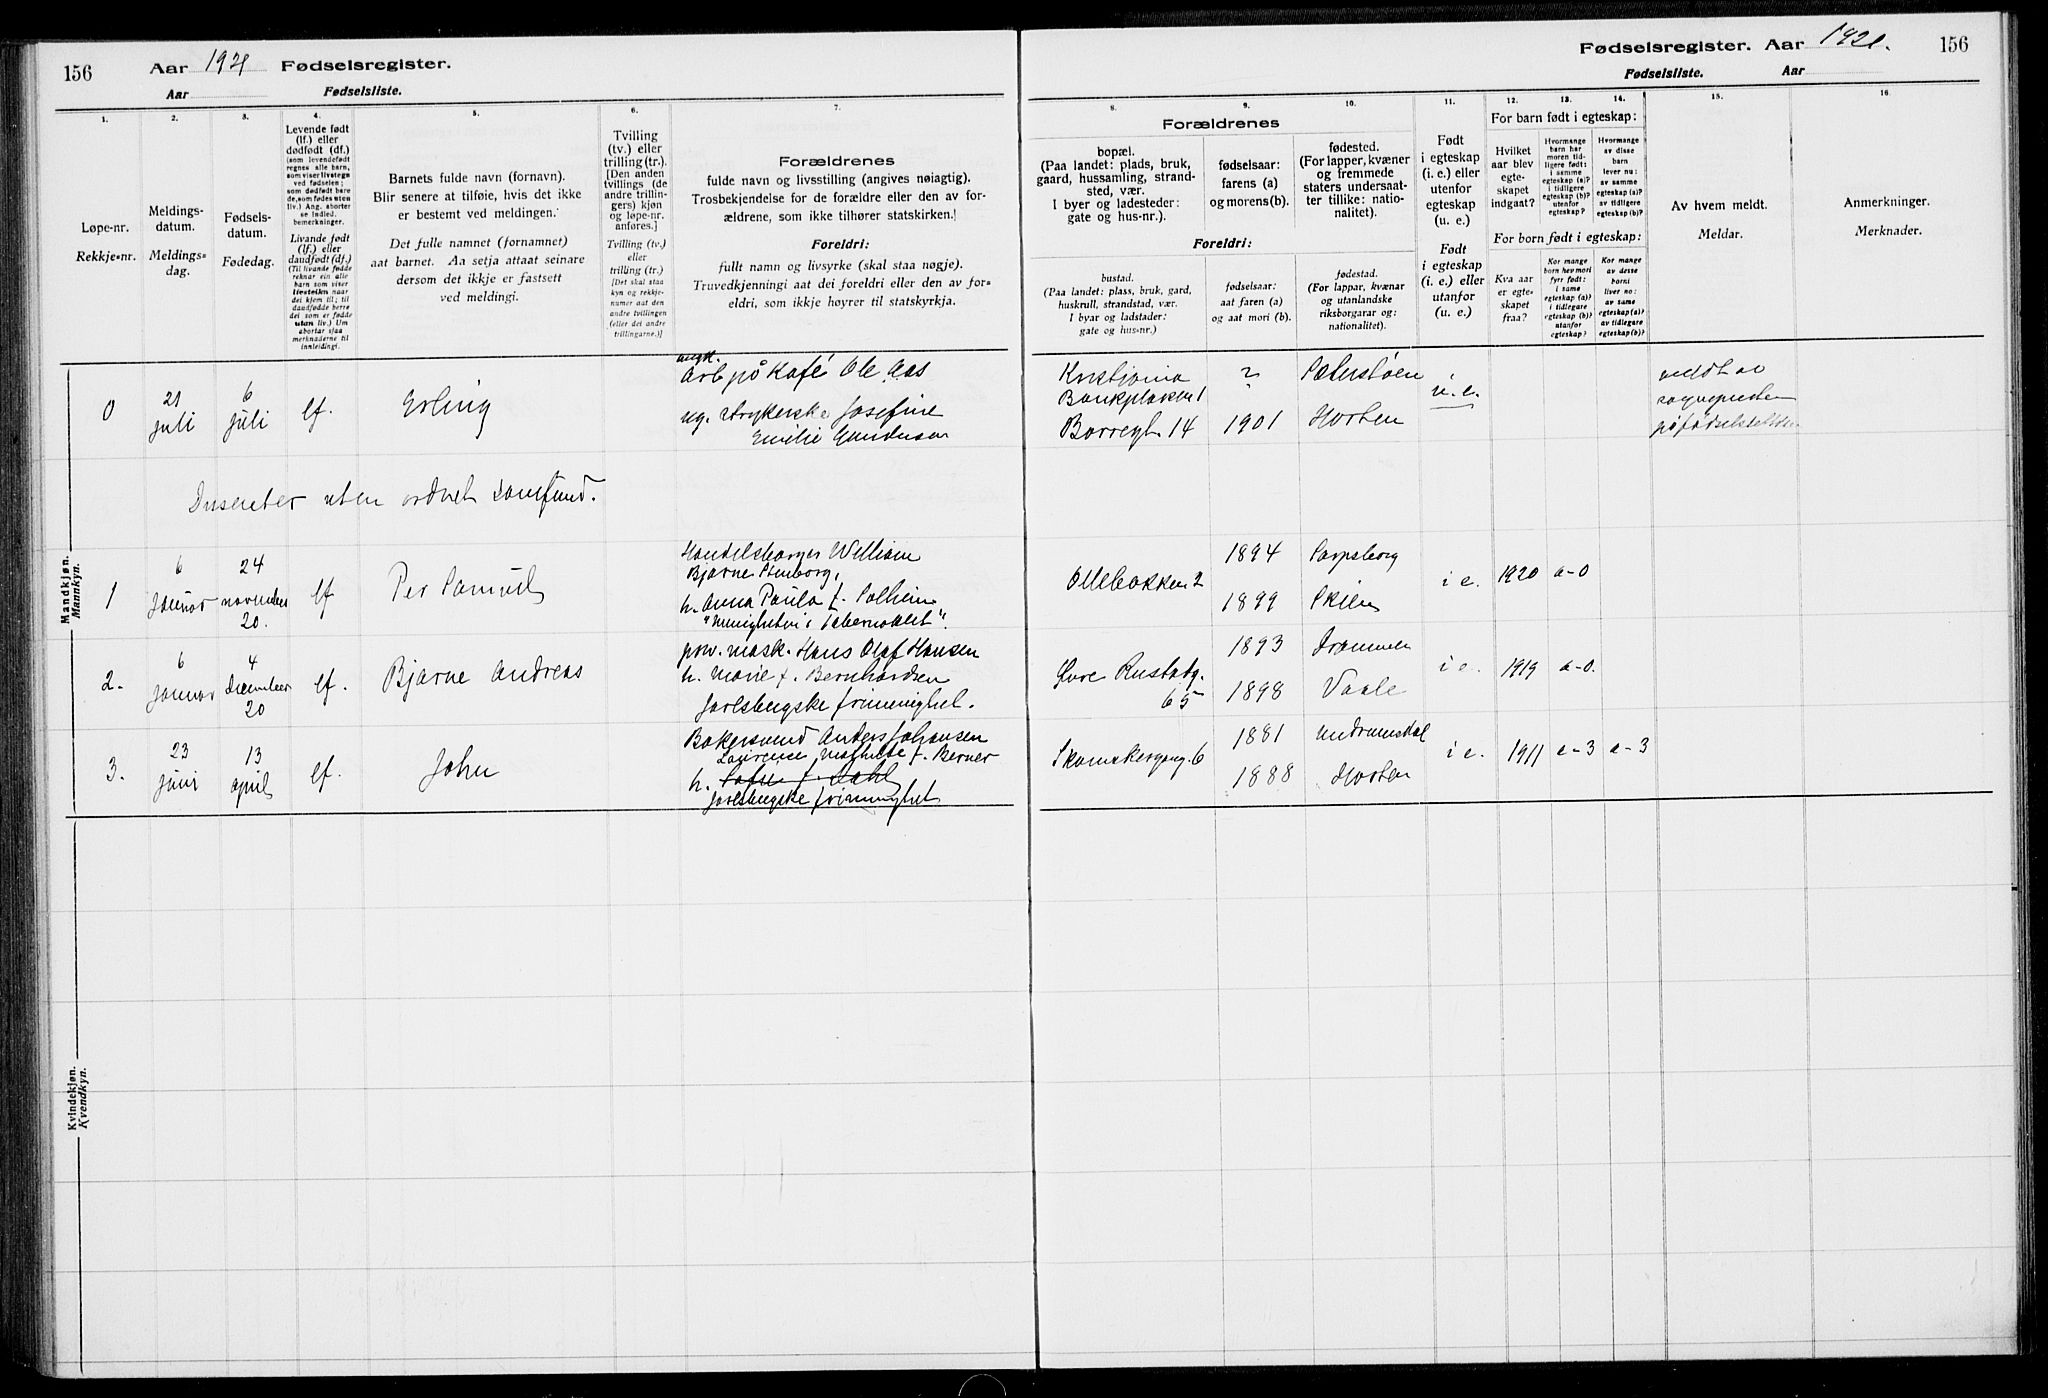 156
Aar 1921 Fødselsregister.
Aar Fødselsliste.
Fødselsregister. Aar 1921.
156
Fødselsliste. Aar
1.
2.
3.
4.
5.
6.
7.
Løpe-nr.
Rekkje-nr.
Meldings-
datum.
Meldings-
dag.
Fødsels-
datum.
Fødedag.
Levende født
(lf.) eller
dødfødt (df.)
(som levendefødt
regnes alle barn,
som viser livstegn
ved fødselen;
som dødfødt bare
de, som fødes uten
liv.) Ang. aborter
se indled.
bemerkninger.
Livande født
(lf.) eller
daudfødt (df.)
(Til livande fødde
reknar ein alle
barn som viser
livsteikn naar
dei kjem til; til
daudfødde berre
dei som er fødde
utan liv.) Um
abortar sjaa
merknaderne til
innleidingi.
Barnets fulde navn (fornavn).
Blir senere at tilføie, hvis det ikke
er bestemt ved meldingen.
Det fulle namnet (fornamnet)
aat barnet. Aa setja attaat seinare
dersom det ikkje er fastsett
ved meldingi.
Tvilling
(tv.) eller
trilling (tr.).
[Den anden
tvillings (de
andre trillin-
gers) kjøn
og løpe-nr.
anføres.]
Tvilling (tv.)
eller
trilling (tr.)
[Det skal staa
kyn og rekkje-
numer aat den
andre tvillingen
(eller dei andre
trillingarne.)]
Forældrenes
fulde navn og livsstilling (angives nøiagtig).
Trosbekjendelse for de forældre eller den av for-
ældrene, som ikke tilhører statskirken.
Foreldri:
fullt namn og livsyrke (skal staa nøgje).
Truvedkjenningi aat dei foreldri eller den av for-
eldri, som ikkje høyrer til statskyrkja.
8.
9.
10.
11.
12.
13.
14.
15.
16.
Forældrenes
bopæl.
(Paa landet: plads, bruk,
gaard, hussamling, strand-
sted, vær.
I byer og ladesteder:
gate og hus-nr.).
fødselsaar:
farens (a)
og morens (b).
fødested.
(For lapper, kvæner
og fremmede
staters undersaat-
ter tillike: natio-
nalitet).
Foreldri:
bustad.
(Paa landet: plass, bruk, gard,
huskrull, strandstad, vær.
I byar og ladstader:
gate og hus-nr.)
fødselsaar:
aat faren (a)
og aat mori (b).
fødestad.
(For lappar, kvænar
og utanlandske
riksborgarar og:
nationalitet).
Født
i egteskap
(i. e.) eller
utenfor
egteskap
(u. e.)
Født
i egteskap
(i. e.) eller
utanfor
egteskap
(u. e.)
For barn født i egteskap:
Hvilket
aar blev
egte-
skapet
indgaat?
Hvormange
barn har
moren tid-
ligere født:
i samme
egteskap (a)?
i tidligere
egteskap (b)?
utenfor
egteskap?
Hvormange
av disse
barn
lever nu:
av samme
egteskap (a)?
av tidligere
egteskap (b)?
For born født i egteskap:
Kva aar
er egte-
skapet
fraa?
Kor mange
born hev mori
fyrr født:
i same
egteskap (a)?
i tidlegare
egteskap (b)?
utanfor
egteskap?
Kor mange
av desse
borni
liver no:
av same
egteskap (a)?
av tidlegare
egteskap (b)?
Av hvem meldt.
Meldar.
Anmerkninger.
Merknader.
Mandkjøn.
Mannkyn.
0
21
juli
6
juli
lf.
Erling
angk.
Arb. på Kafé Ole Aas
ug. strykerske Josefine
Emilie Gundersen
Kristiania
Bankpladsen 1
Borregt. 14
?
1901
Horten
u. e.
meldt av
sognepresten
på fødselstedet
Dissenter uten ordnet samfund.
1
6
januar
24
november
20.
lf
Per Samuel
Handelsborger William
Bjarne Stenborg,
h. Anna Paula f. Solheim
"Menigheten i Tabernaklet".
Ollebakken 2
1894
1899
Sarpsborg
Skien
i e.
1920
a-0
2.
6
januar
4
desember
20
lf.
Bjarne Andreas
prov. mask. Hans Olaf Hansen
h. Marie f. Bernhardsen
Jarlsbergske frimenighet.
Øvre Rustadg.
65
1893
1898
Drammen
Vaale
i e.
1919
a-0.
3.
23
juni
13
april
lf.
John
Bakersvend Anders Johansen
Laurense Mathilde f. Berner
h.
Jarlsbergske frimenighet
Skomakergang. 6
1881
1888
Undrumsdal
Horten
i e.
1911
a-3
a-3
Kvindekjøn.
Kvendkyn.